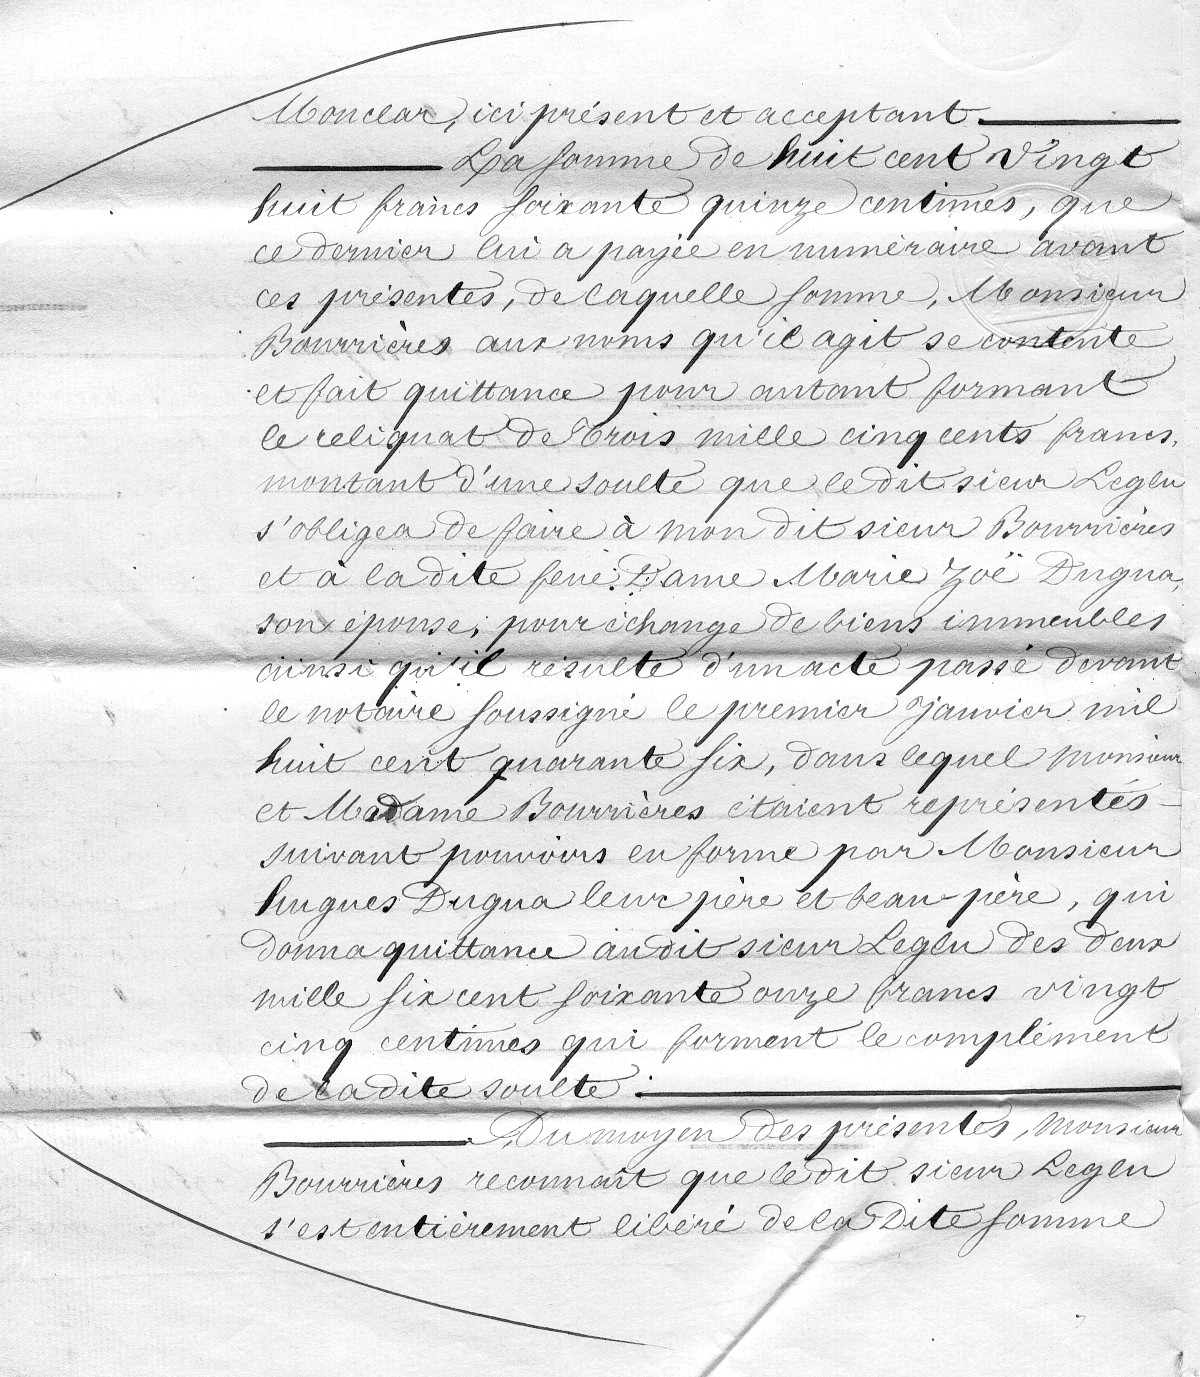 Monclar, ici présent et acceptant
La somme de huit cent vingt
huit francs soixante quinze centimes, que
ce dernier lui a payée en numéraire avant
ces présentes, de laquelle somme, Monsieur
Bourrières aux noms qu'il agit se contente
et fait quittance pour autant formant
le reliquat de trois mille cinq cents francs,
montant d'une soulte que le dit sieur Leglu
s'obligea de faire à mon dit sieur Bourrières
et à la dite feue Dame Marie Zoë Dugua,
son épouse, pour échange de biens immeubles
ainsi qu'il résulte d'un acte passé devant
le notaire soussigné le premier janvier mil
huit cent quarante six, dans lequel Monsieur
et Madame Bourrières étaient représentés
suivant pouvoirs en forme par Monsieur
hugues Dugua leur père et beau-père, qui
donna quittance au dit sieur Leglu des deux
mille six cent soixante onze francs vingt
cinq centimes qui forment le complément
de la dite soulte.
Du moyen des présentes, Monsieur
Bourrières reconnaît que le dit sieur Leglu
s'est entièrement libéré de la dite somme